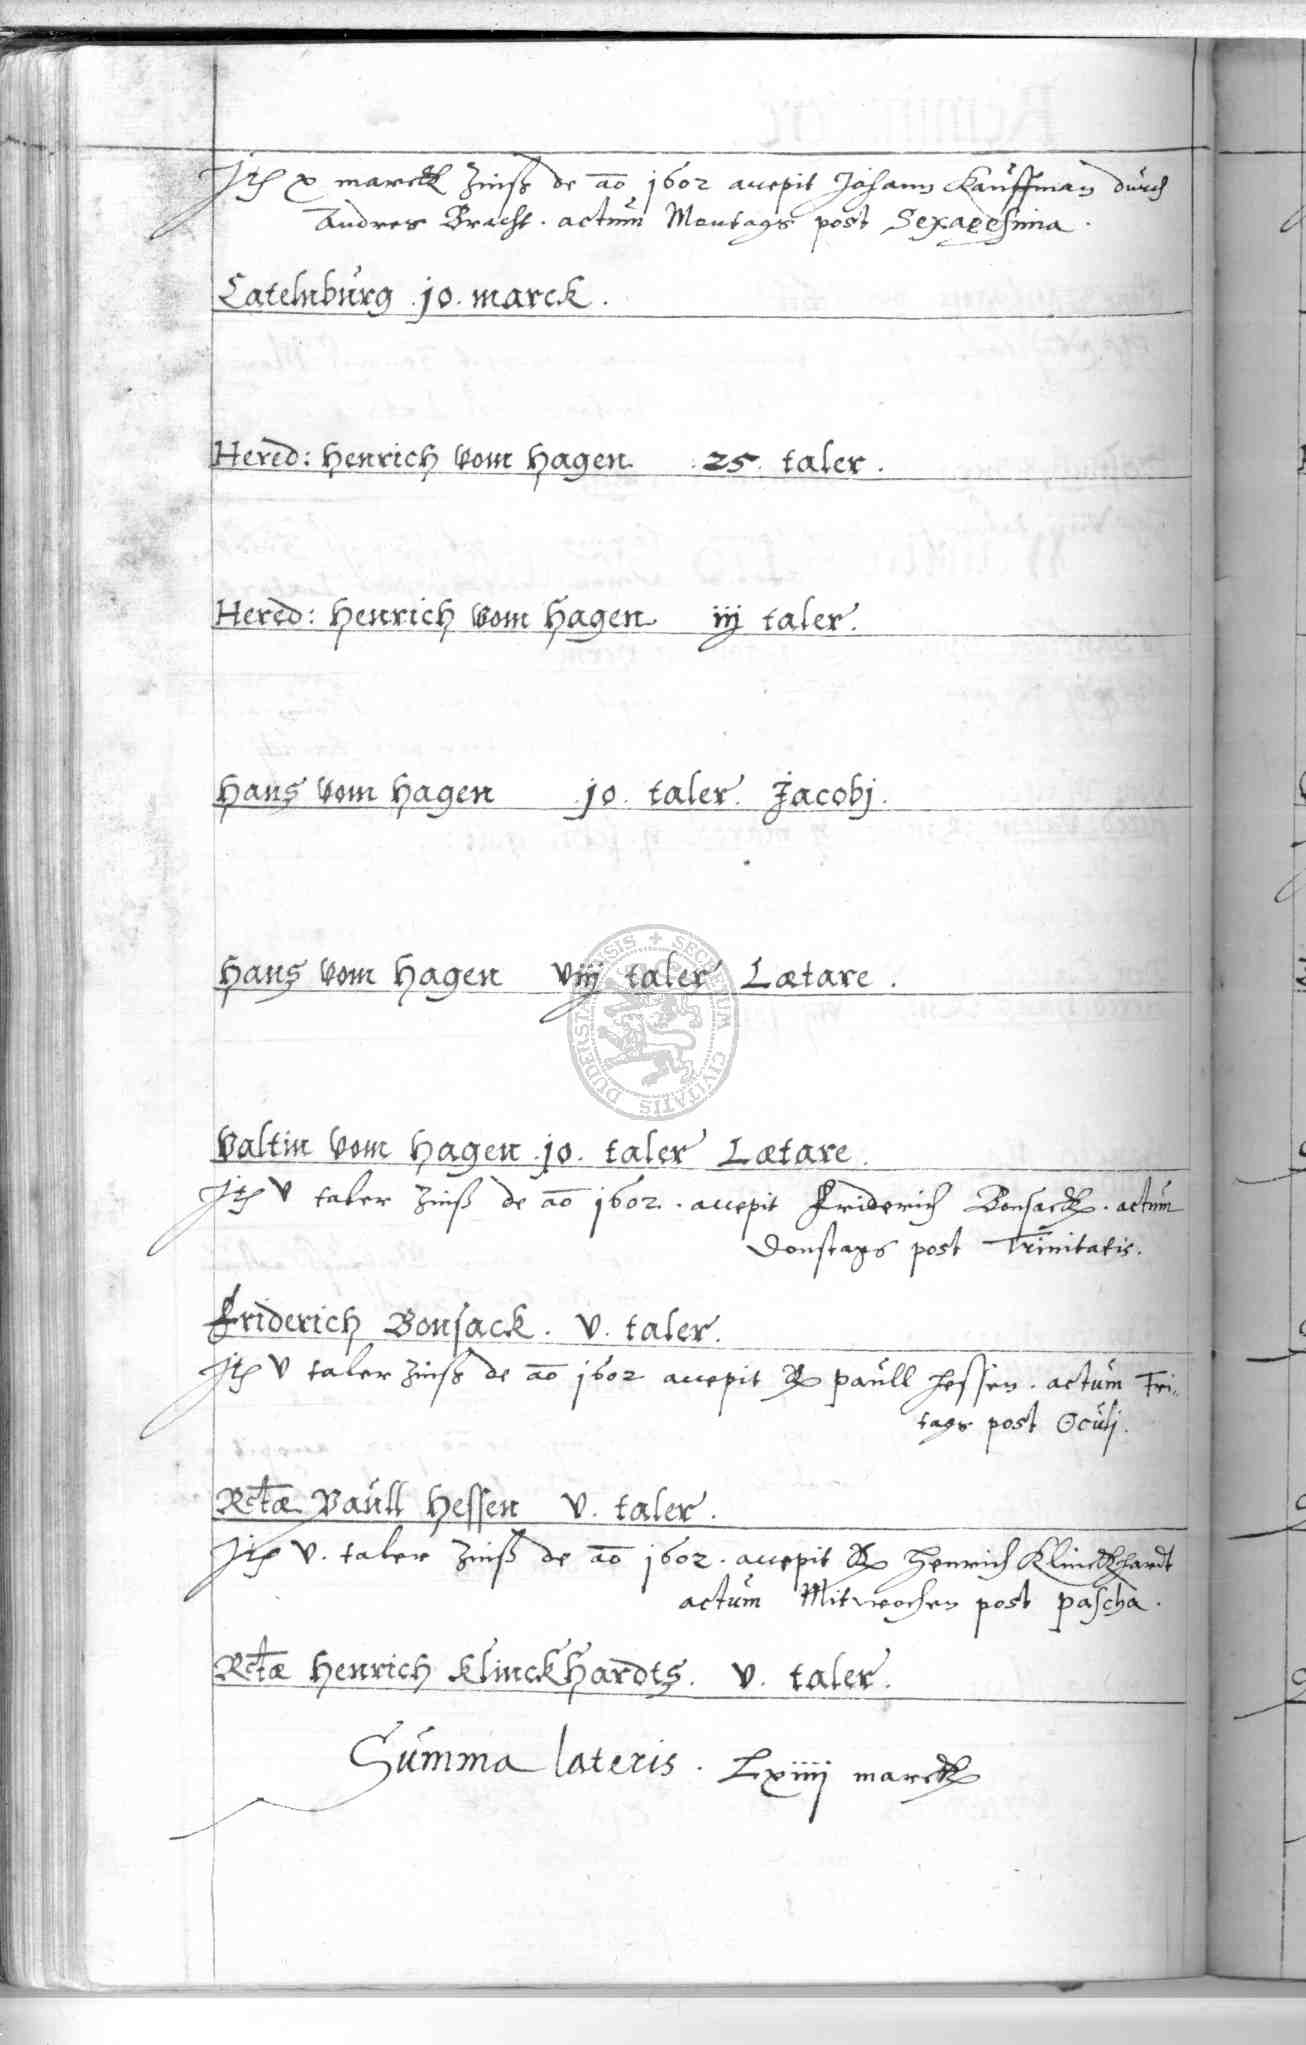 Jtem x marck Zinß de ao 1602 accepit Johann Kauffman durch
Andres Bracht . actum Montags post Sexagesima .
Catelnburg . 10 . marck .
Hered: Henrich vom Hagen . 25 . taler .
Hered: Henrich vom Hagen iij taler .
Hans vom Hagen . 10 . taler . Jacobj .
Hans vom Hagen viij taler Lætare .
DUDERSTADENSIS + SECRETUM CIVITATIS
Valtin vom Hagen . 10 . taler Lætare .
Jtem v taler Zinß de ao 1602 . accepit Friderich Bonsack . actum
Donstags post Trinitatis .
Friderich Bonsack . v . taler .
Jtem v taler Zinß de ao 1602 accepit Paull Hessen . actum Fri-
tags post Oculj .
Rctæ Paull Hessen v . taler .
Jtem v . taler Zinß de ao 1602 . accepit Henrich Klinckhardt
actum Mitwochen post Pascha .
Rctæ Henrich Klinckhardts . v . taler .
Summa lateris . Lxiiij marck